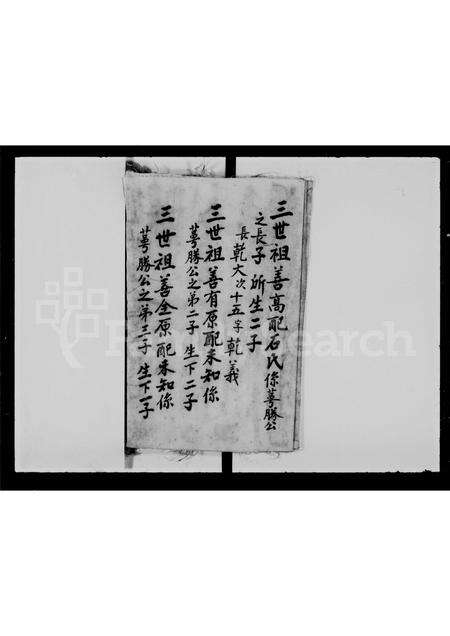 三世祖善高配石氏係萼勝公
之長子所生二子
長乾大次十五字乾義
三世祖善有原配未知係
萼勝公之弟二子 生下二子
三世祖善全原配未知係
萼勝公之弟三子 生下一子
FamilySearch